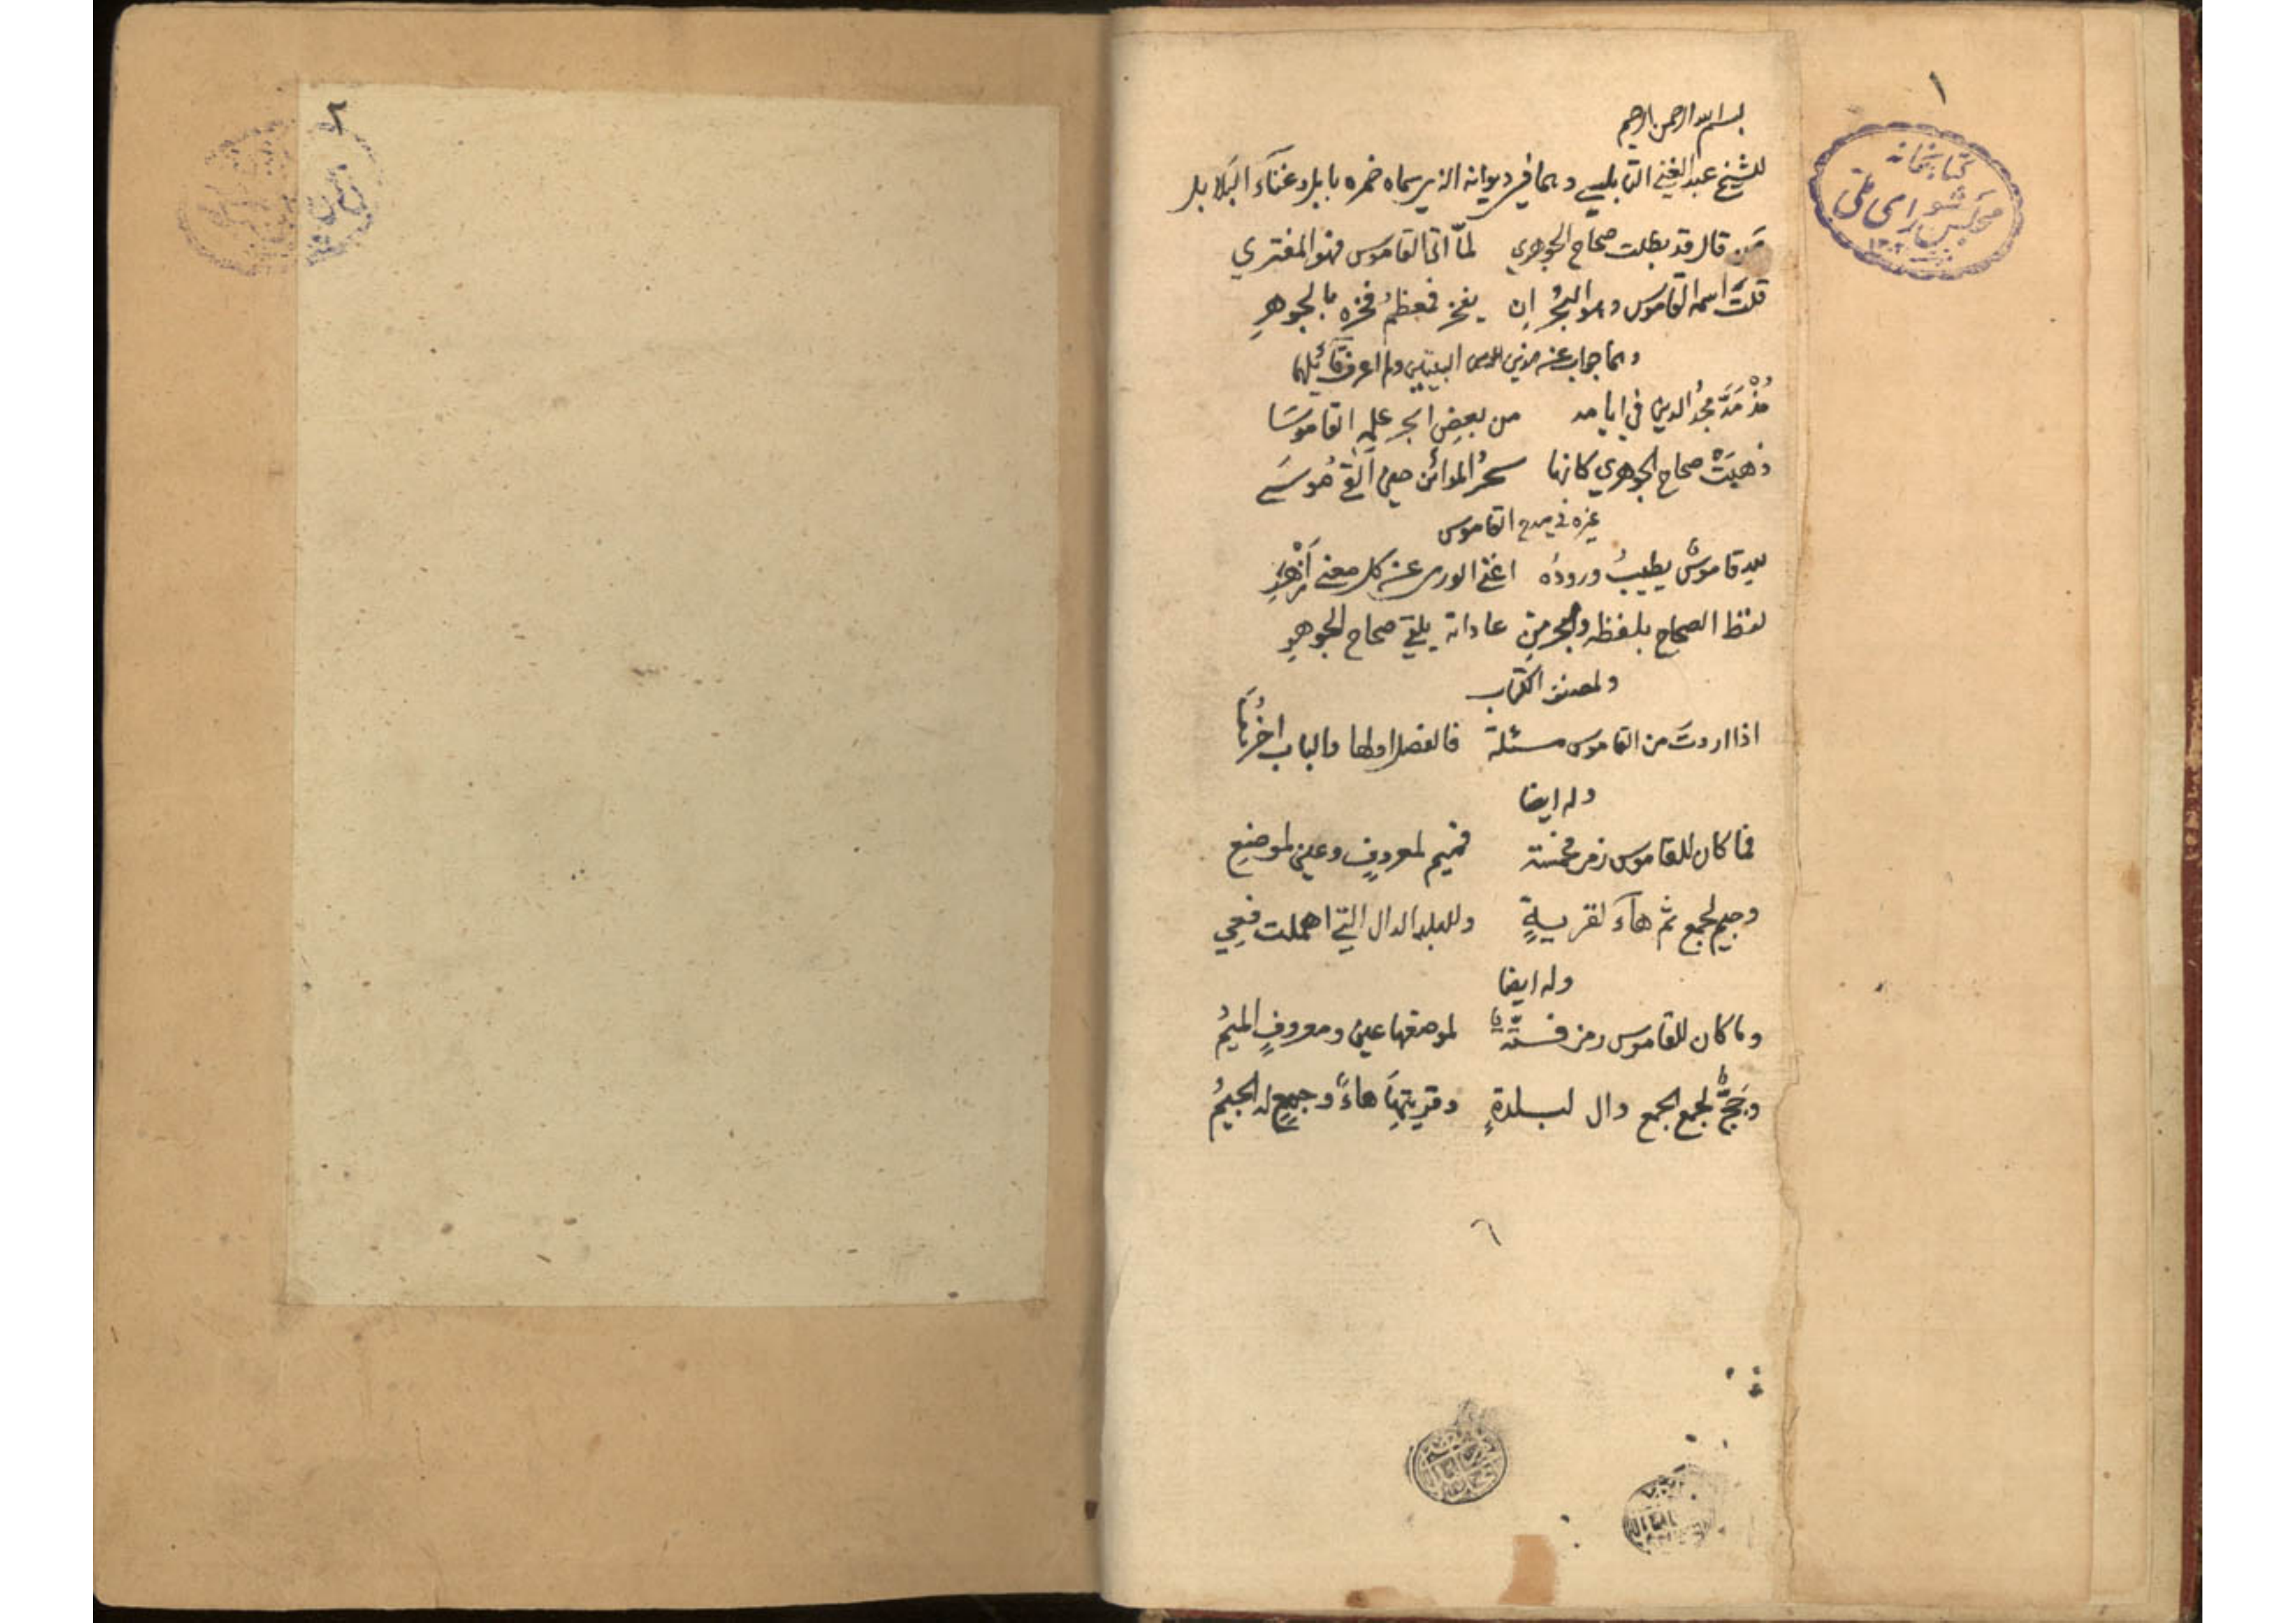 ١
كتابخانه
مجلس شورای ملی
بسم الله الرحمن الرحيم
للشيخ عبد الغني النابلسي وهما في ديوانه الذي سماه خمره بابل وغنآء البلابل
مَن قال قد بطلت صحاح الجوهري لمّا اتى القاموس فهو المفتري
قلتُ اسمه القاموس وهو البحرُ ان يفخر فمعظمُ فخره بالجوهرِ
وهما جواب عن هذين البيتين ولم اعرف قآئلهما
مُذْ مَدَّ مجدُ الدين في ايامه من بعضِ ابحر علمِه القاموسَا
ذهبَتْ صحاح الجوهري كانها سحرُ المدائن حين القى مُوسَى
غيره في مدح القاموس
لله قاموسٌ يطيبُ ورودُه اغنى الورى عن كل معنى أزْهَرِ
لفظ الصحاح بلفظه والبحر من عاداته يلقي صحاح الجوهرِ
ولمصنف الكتاب
اذا اردتَ من القاموس مسئلة فالفصل اولها والباب اخرُها
وله ايضا
فما كان للقاموس رمز فخمسة فميم لمعروفٍ وعين لموضعِ
وجيم لجمع ثم هآء لقريةٍ وللبلد الدال التي اهملت فعِي
وله ايضا
وما كان للقاموس رمز فستة لموضعها عين ومعروفٍ الميمُ
وجَجٌّ لجمع الجمع دال لبلدةٍ وقريتها هاءٌ وجمعٍ له الجيمُ
٢